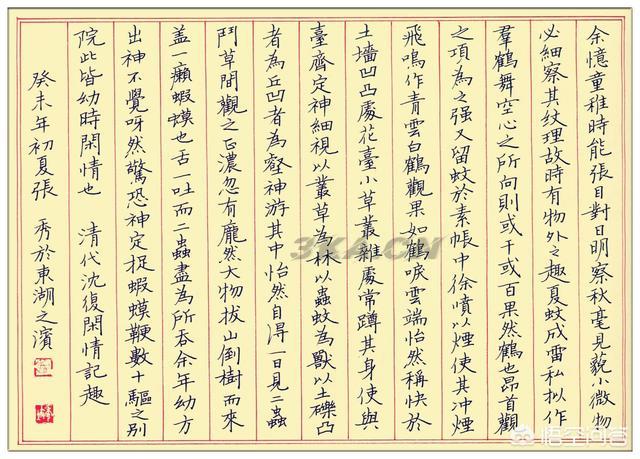 余憶童稚時能張目對日明察秋毫見藐小微物
必細察其紋理故時有物外之趣夏蚊成雷私拟作
羣鶴舞空心之所向則或千或百果然鶴也昂首觀
之項為之强又留蚊於素帳中徐噴以煙使其冲煙
飛鳴作青雲白鶴觀果如鶴唳雲端怡然稱快於
土墻凹凸處花臺小草叢雜處常蹲其身使與
臺齊定神細視以叢草為林以蟲蚊為獸以土礫凸
者為丘凹者為壑神游其中怡然自得一日見二蟲
鬥草間觀之正濃忽有龐然大物拔山倒樹而來
盖一癩蝦蟆也舌一吐而二蟲盡為所吞余年幼方
出神不覺呀然驚恐神定捉蝦蟆鞭數十驅之别
院此皆幼時閑情也 清代沈復閑情記趣
癸未年初夏張 秀於東湖之濱
3KA.CN
悟空问答